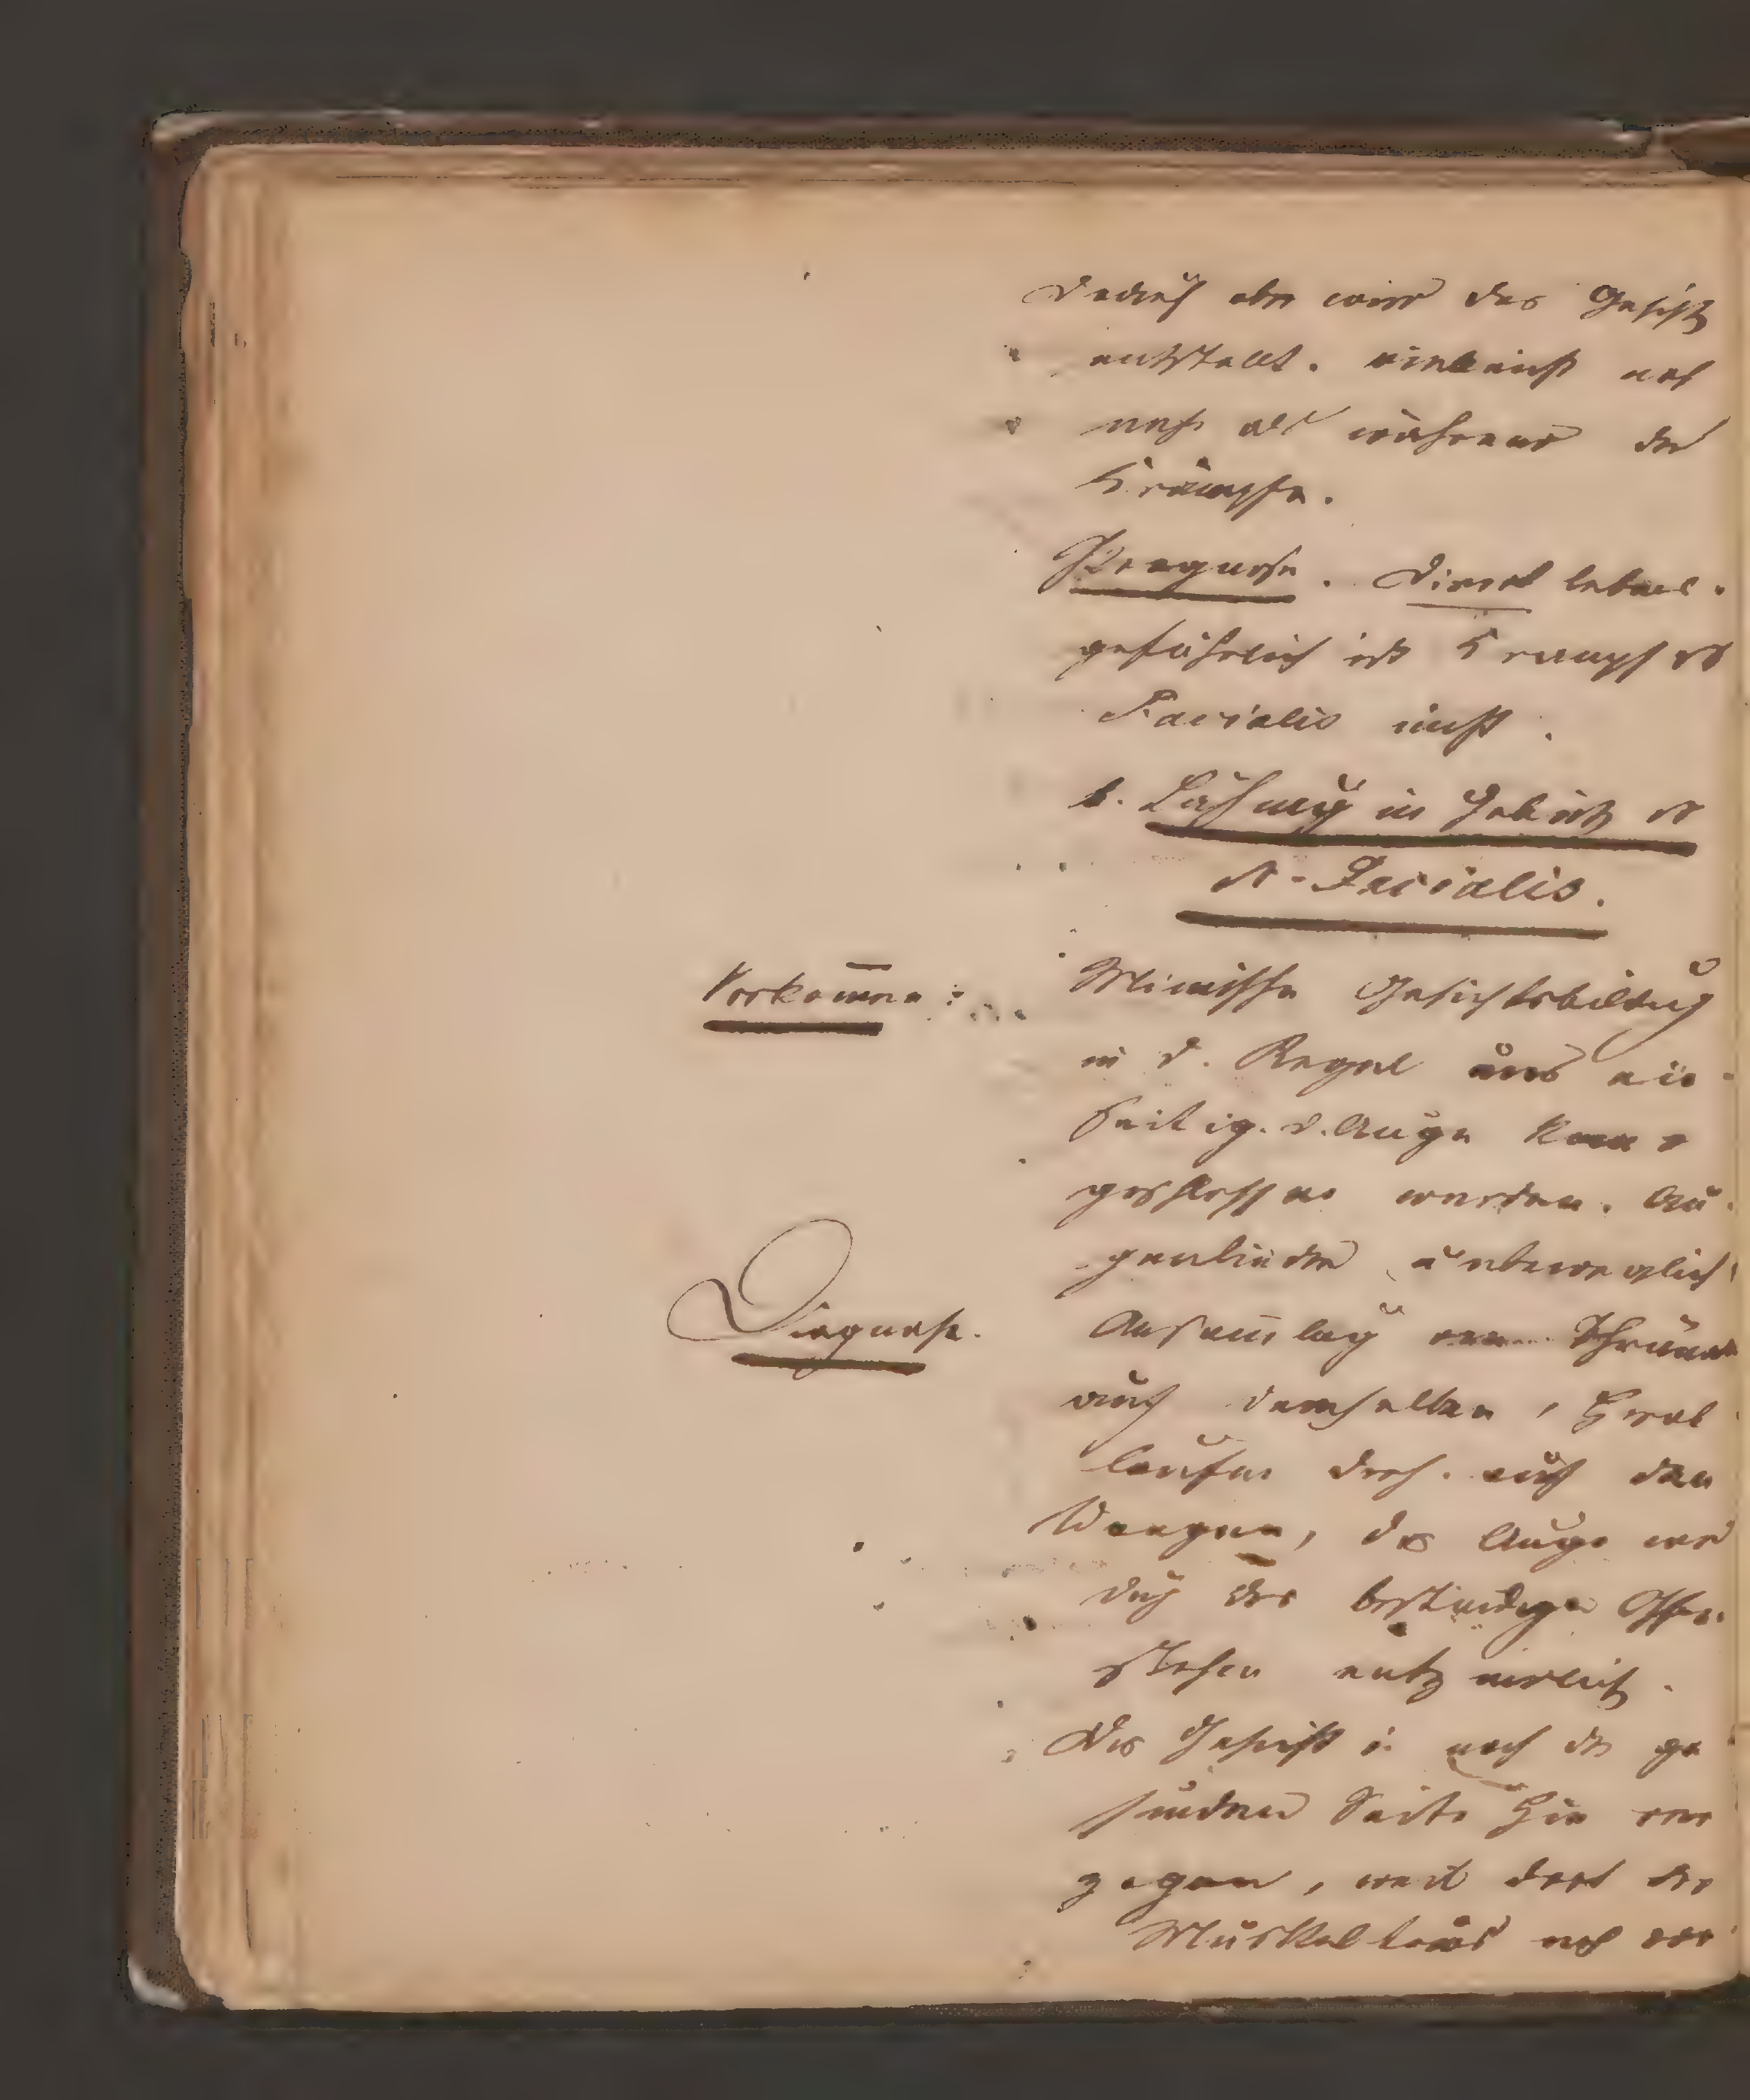 Dadurch aber wird das Gesicht
entstellt. vielleicht noch
mehr als während der
Krämpfe.
Prognose. Direct lebens-
gefährlich ist Krampf des
Facialis nicht.
b. Lähmung im Gebiete des
N. Facialis.
Vorkommen:
Mimische Gesichtsbildung
in d. Regel ein-
seitig. d. Auge kann
geschlossen werden. Au-
genlieder unbeweglich
Diagnose.
Ansammlung von Thränen
auf demselben, Herab
laufen auf den
Wangen, das Auge wird
durch das beständige Offen-
stehen entzündlich.
Das Gesicht i. nach der ge
sunden Seite hin ver
zogen, weil dort der
Muskeltonus noch vor